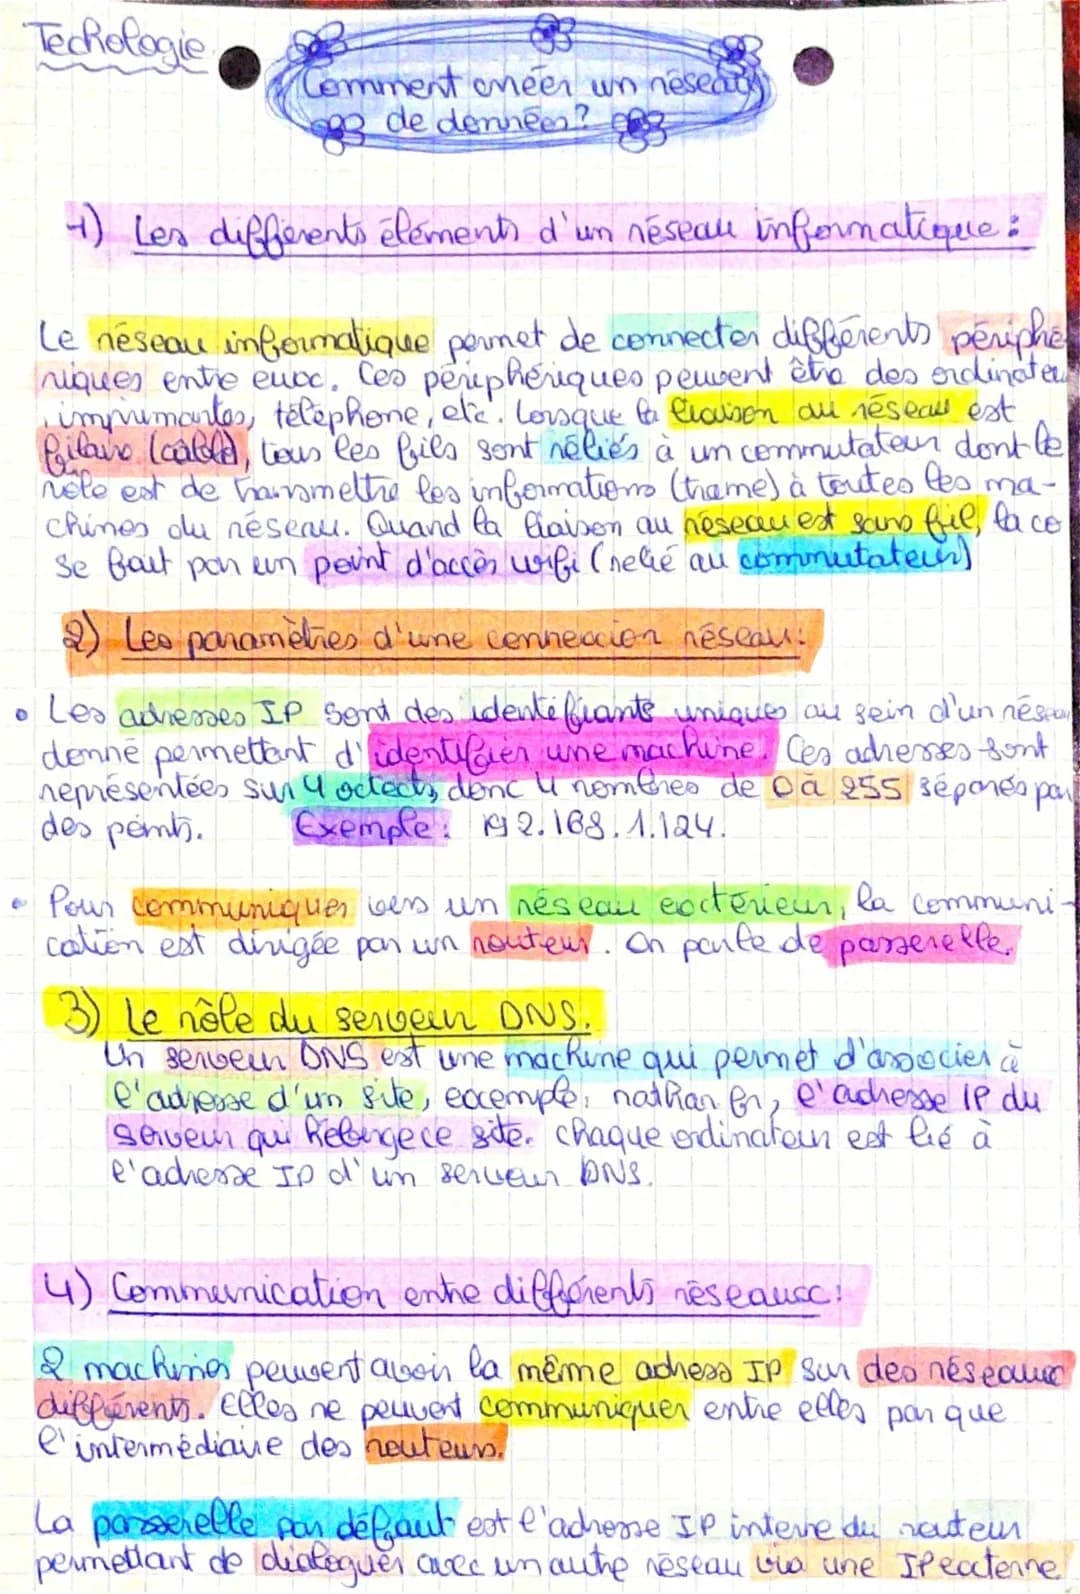 Techologie
Comment créer un réseau
de données?
1) Les différents éléments d'un réseau informatique :
Le réseau informatique permet de connecter différents périphé-
riques entre eux. Ces périphériques peuvent être des ordinateu
, imprimantes, téléphone, etc. Lorsque la liaison au réseau est
filaire (câble), tous les fils sont réliés à un commutateur dont le
rôle est de transmettre les informations (trame) à toutes les ma-
chines du réseau. Quand la liaison au réseau est sans fil, la co
se fait par un point d'accès wifi (relié au commutateur)
2) Les paramètres d'une connexion réseau:
• Les adresses IP sont des identifiants uniques au sein d'un réseau
donné permettant d'identifier une machine. Ces adresses sont
représentées sur 4 octects, donc 4 nombres de 0 à 255 séparés par
des points. Exemple: 192.168.1.124.
• Pour communiquer vers un réseau extérieur, la communi-
cation est dirigée par un routeur. On parle de passerelle.
3) Le rôle du serveur DNS.
Un serveur DNS est une machine qui permet d'associer à
l'adresse d'un site, exemple, nathan fr, l'adresse IP du
serveur qui héberge ce site. Chaque ordinateur est lié à
l'adresse IP d'un serveur DNS.
4) Communication entre différents réseaux:
2 machines peuvent avoir la même adress IP sur des réseaux
différents. Elles ne peuvent communiquer entre elles par que
l'intermédiaire des routeurs.
La passerelle par défaut est l'adresse IP interne du routeur
permettant de dialoguer avec un autre réseau via une IP externe